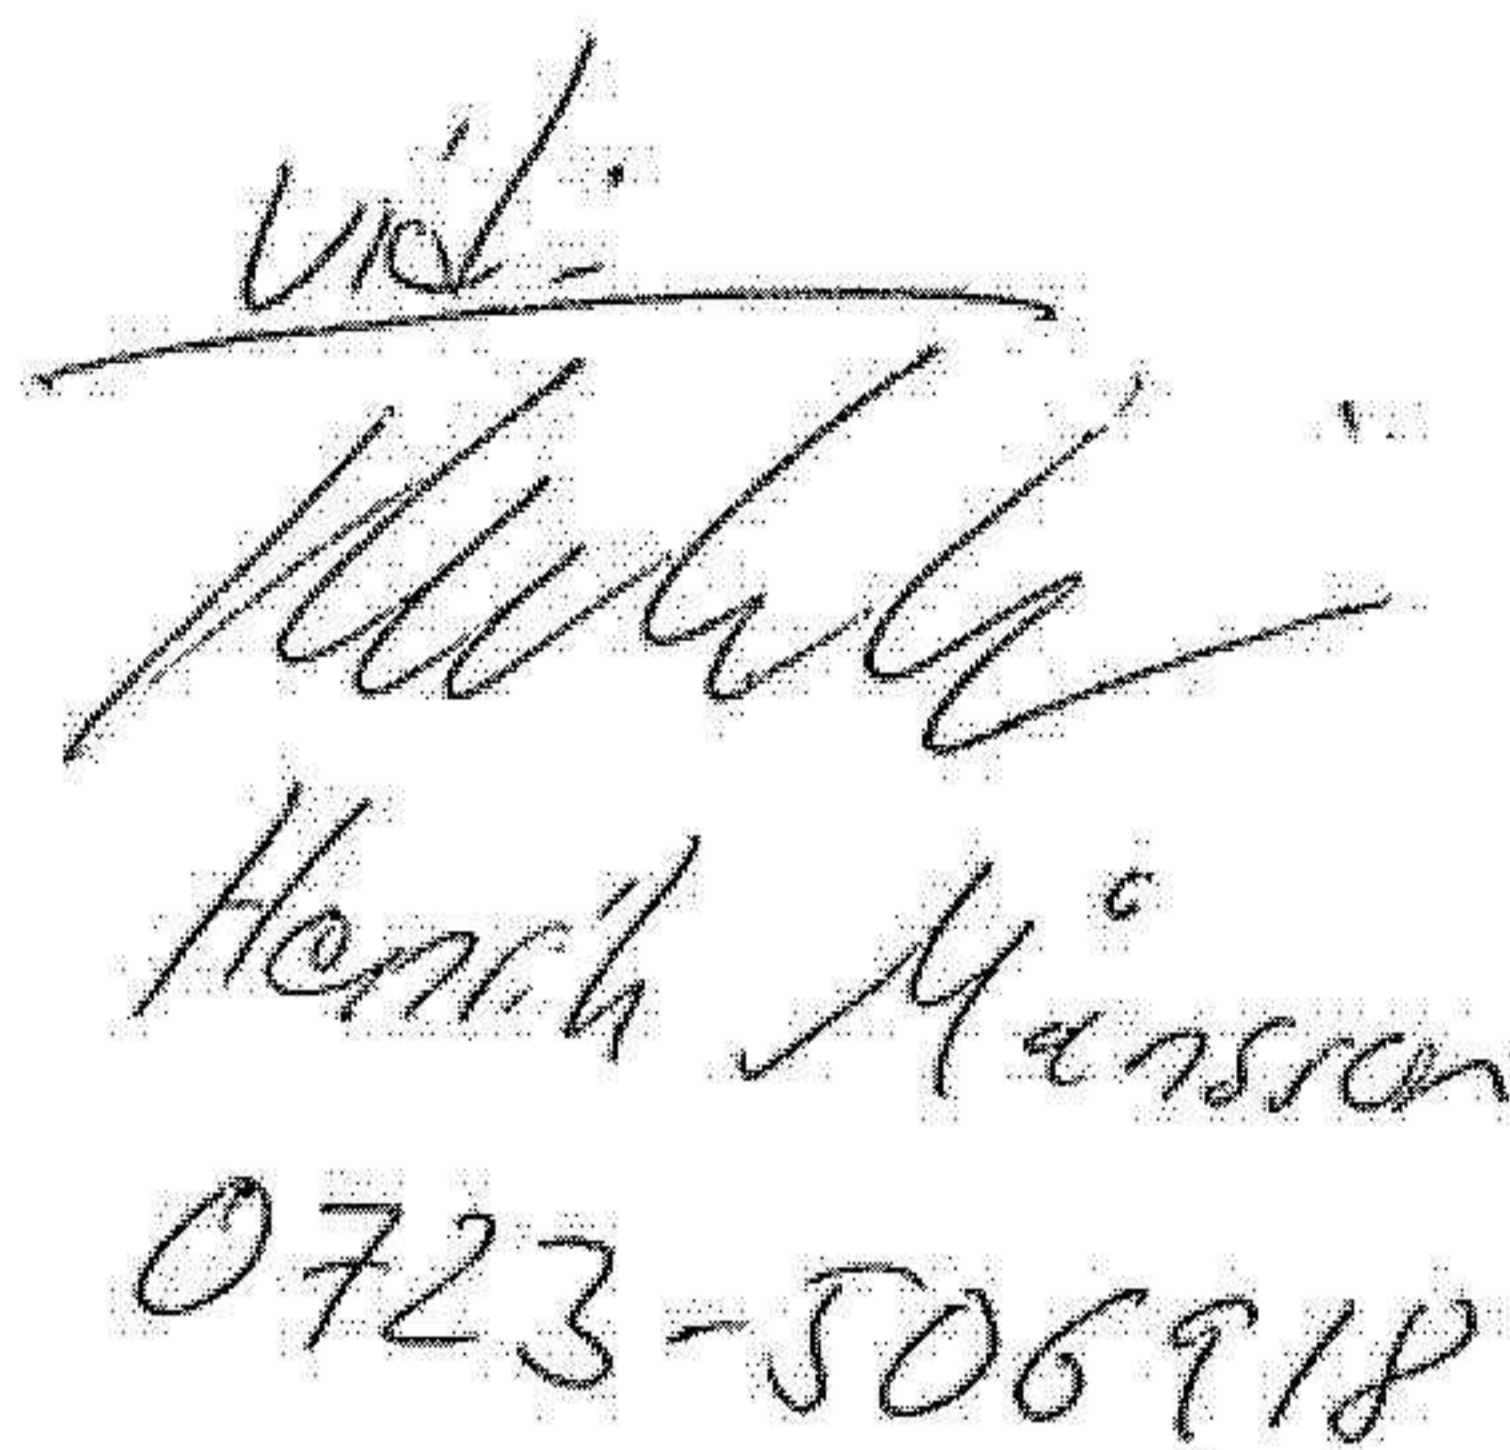 Vid:
Henrik Månsson
0723-506918